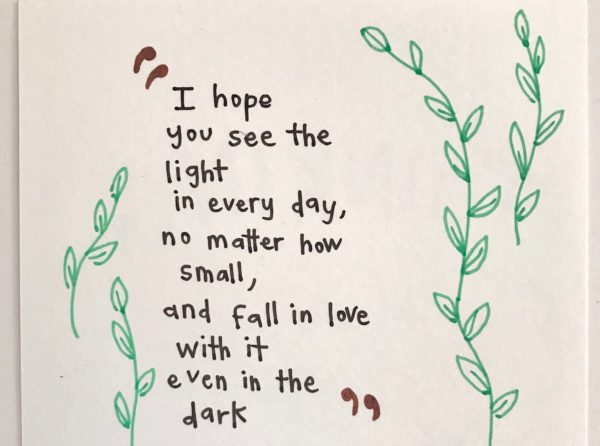 "I hope
you see the
light
in every day,
no matter how
small,
and fall in love
with it
even in the
dark"